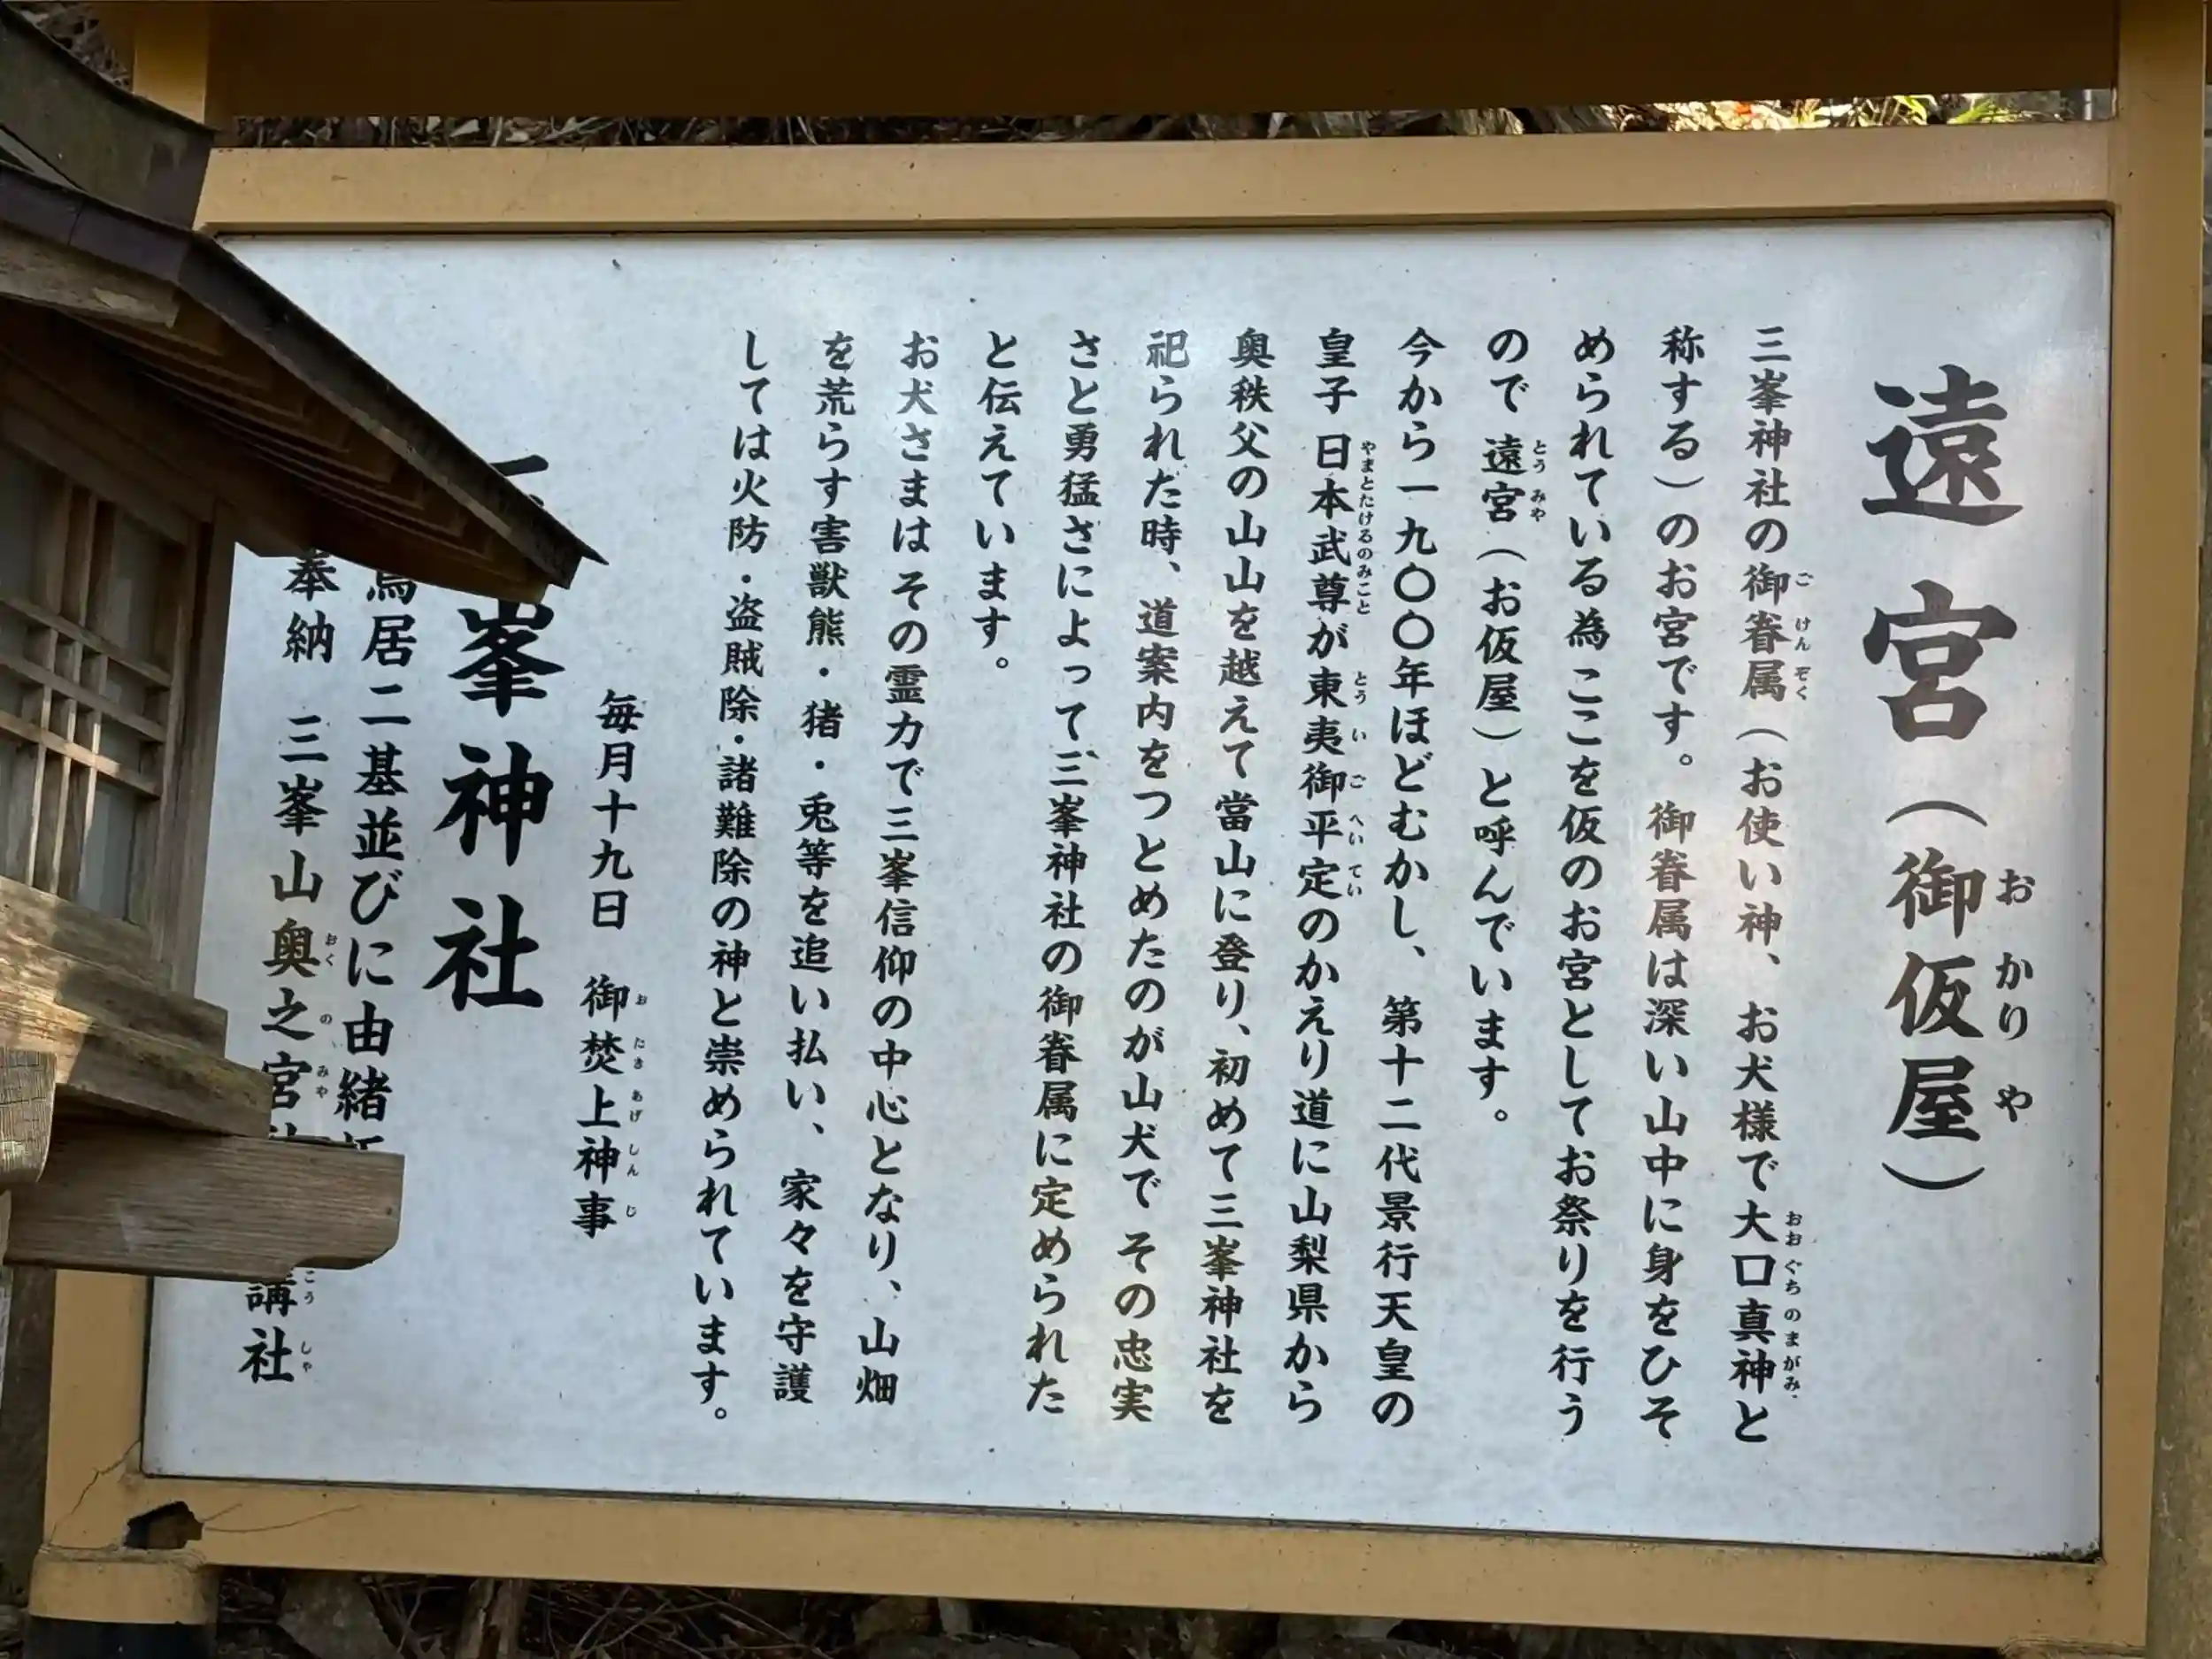 遠宮（御仮屋）
三峯神社の御眷属（お使い神、お犬様で大口真神と
称する）のお宮です。御眷属は深い山中に身をひそ
められている為ここを仮のお宮としてお祭りを行う
ので 遠宮（お仮屋）と呼んでいます。
今から一九〇〇年ほどむかし、第十二代景行天皇の
皇子 日本武尊が東夷御平定のかえり道に山梨県から
奥秩父の山山を越えて當山に登り、初めて三峯神社を
祀られた時、道案内をつとめたのが山犬で その忠実
さと勇猛さによって三峯神社の御眷属に定められた
と伝えています。
お犬さまはその霊力で三峯信仰の中心となり、山畑
を荒らす害獣熊・猪・兎等を追い払い、家々を守護
しては火防・盗賊除・諸難除の神と崇められています。
毎月十九日 御焚上神事
峯神社
鳥居二基並びに由緒
奉納 三峯山奥之宮 講社